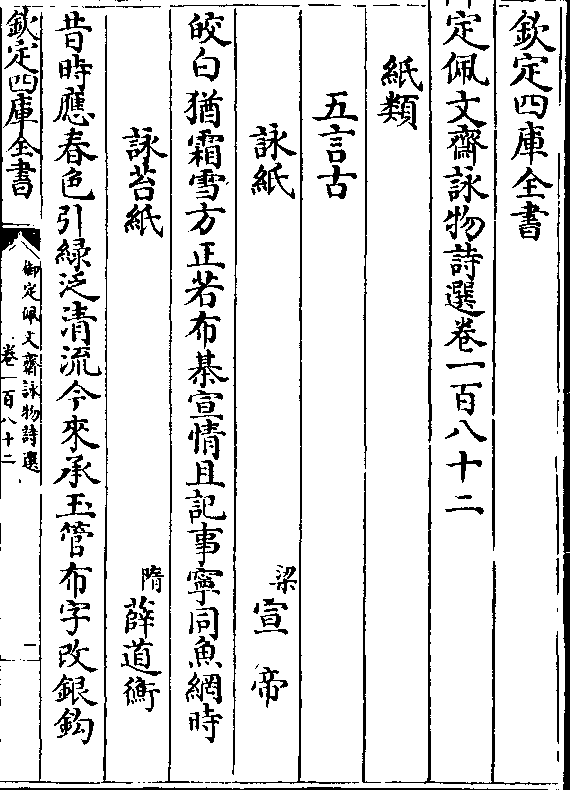 欽定四庫全書
定佩文齋詠物詩選卷一百八十二
紙類
五言古
詠紙
梁宣帝
皎白猶霜雪方正若布棊宣情且記事寧同魚網時
詠苔紙
隋薛道衡
昔時應春色引綠泛清流今來承玉管布字改銀鈎
欽定四庫全書
御定佩文齋詠物詩選
卷一百八十二